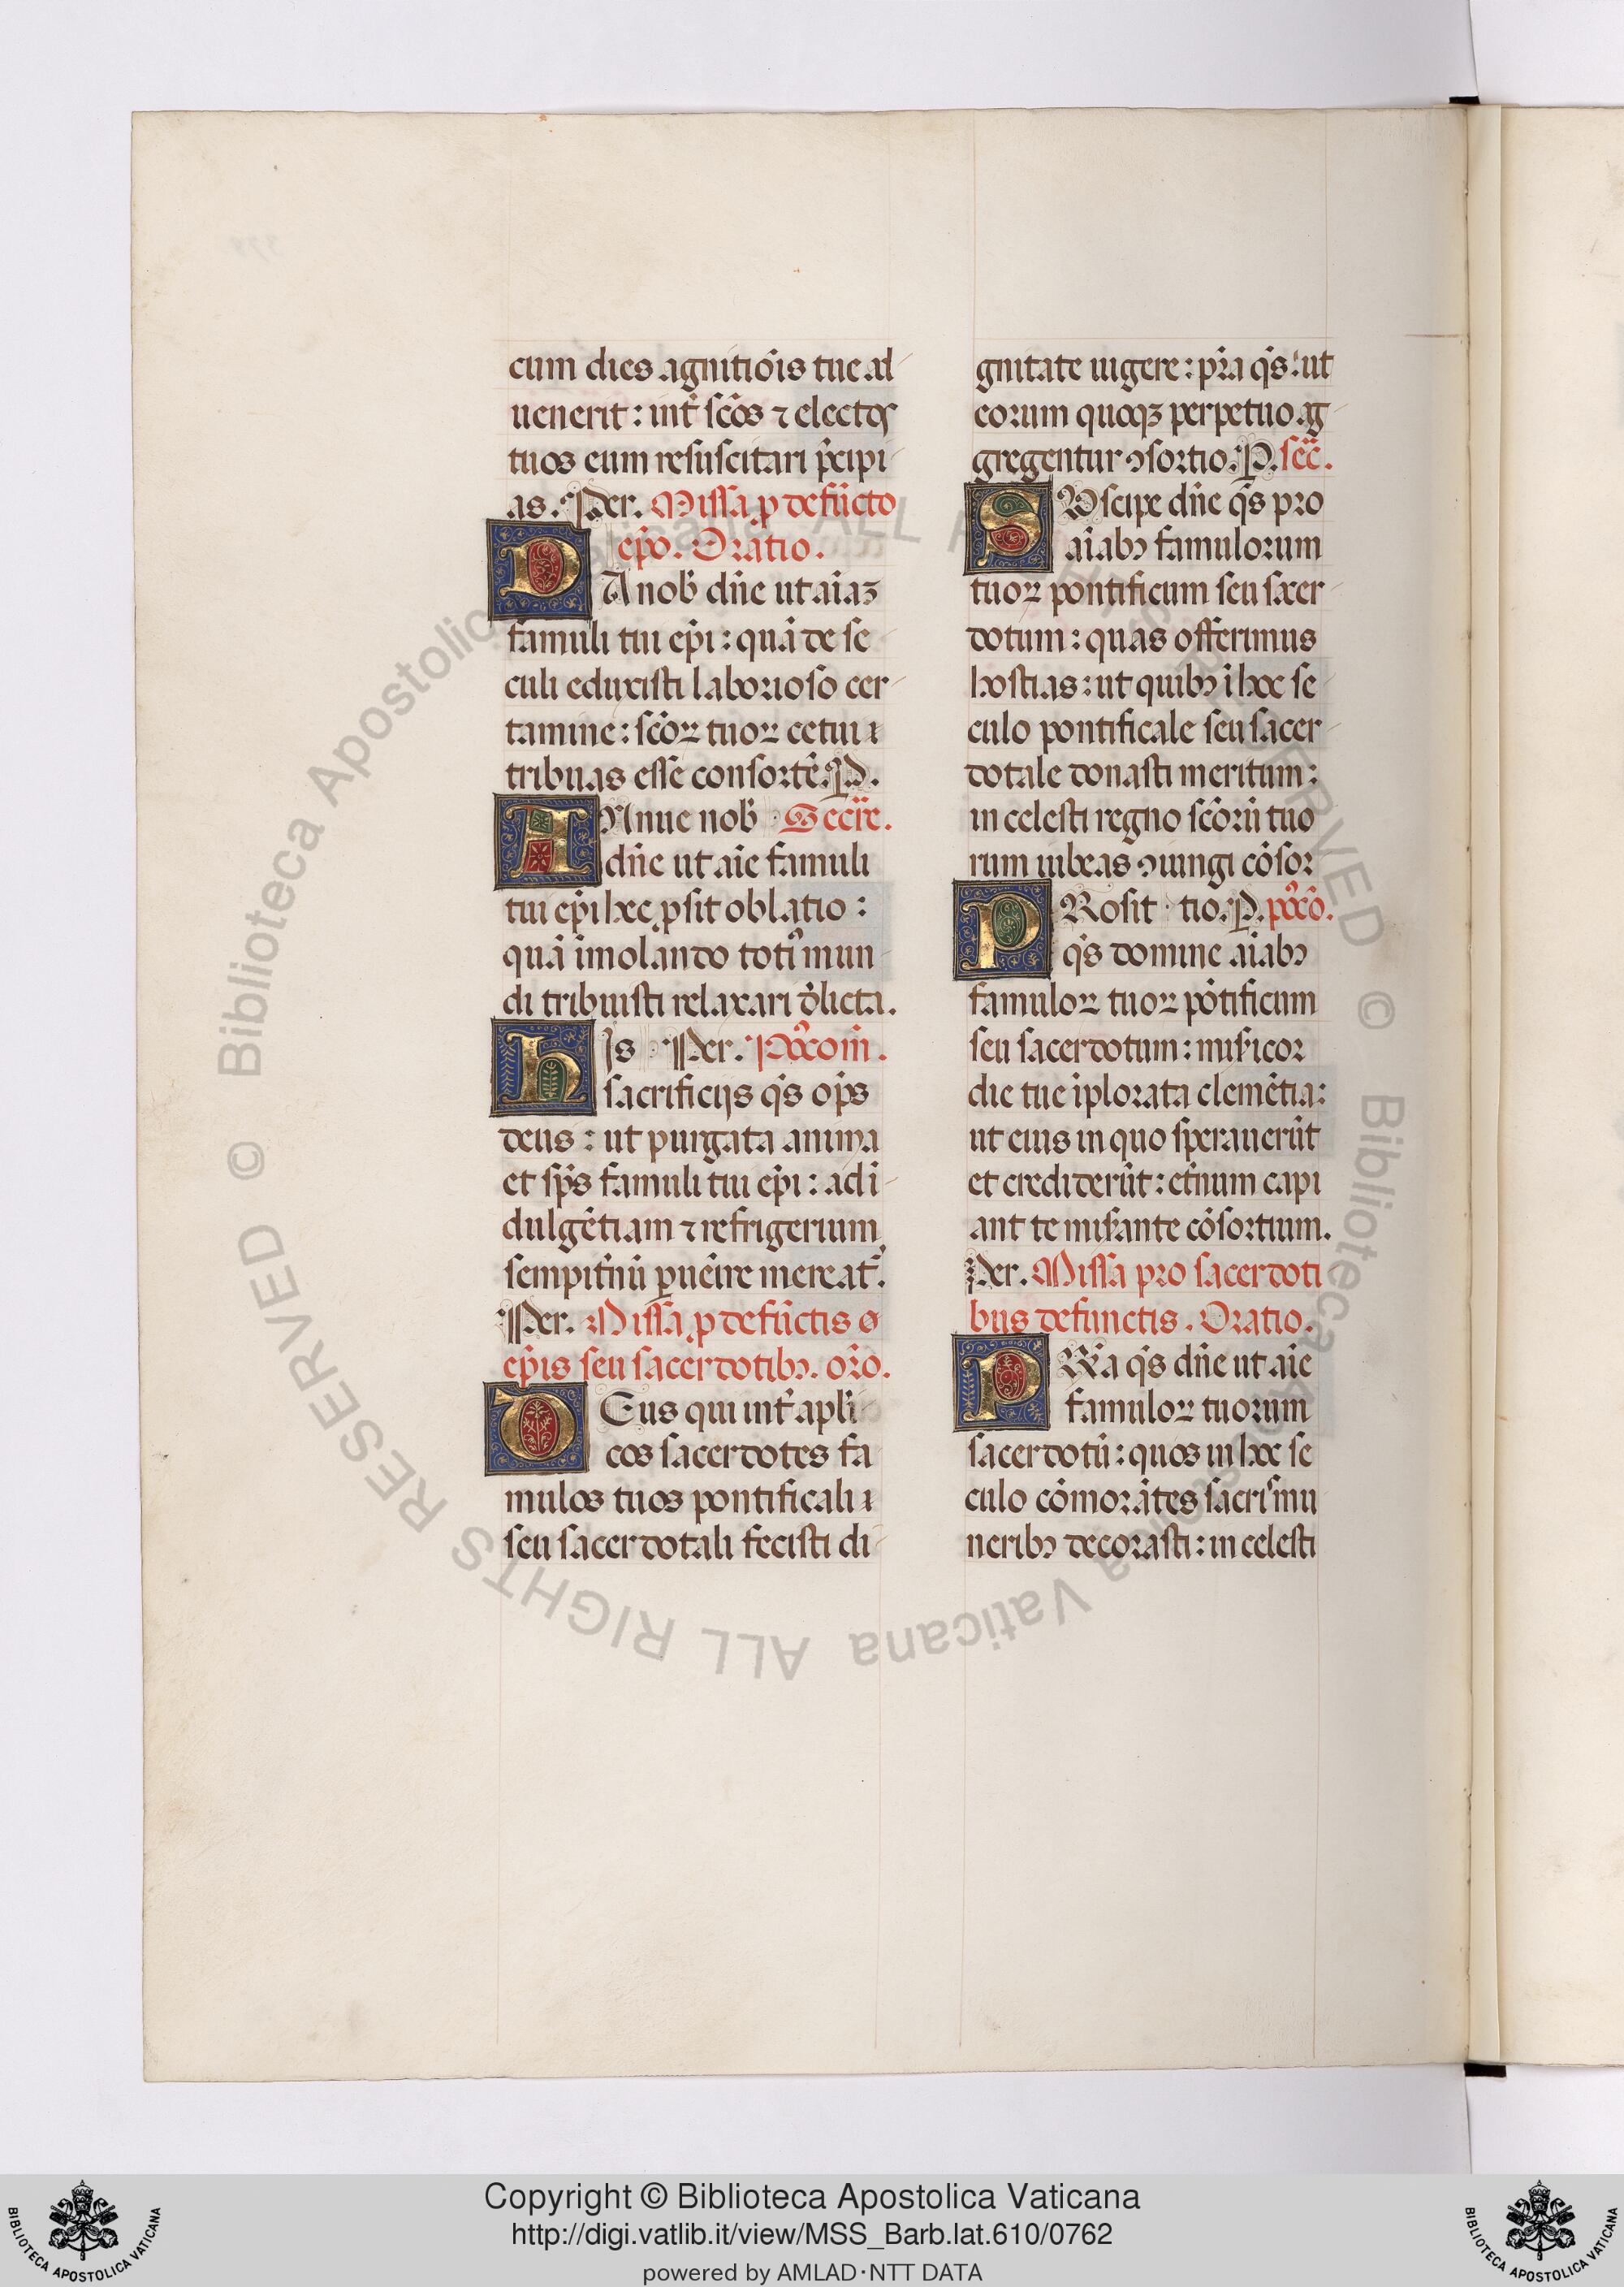 cum dies agnitiōis tue ad
uenerit : int̄ sc̄os ⁊ electos
tuos eum resuscitari p̄cipi
as. Per. Missa ꝓ defūcto
D
ep̄o. Oratio.
A nob̄ dn̄e ut aīaꝫ
famuli tui ep̄i : quā de se
culi eduxisti laborioso cer
tamine : sc̄oꝝ tuoꝝ cetui
tribuas esse consortē. P.
A
Nnue nob̄ Secre.
dn̄e ut aīe famuli
tui ep̄i hec ꝓsit oblatio :
quā īmolando totiꝰ mun
di tribuisti relaxari d̄licta.
H
Is Per. Pꝰcom̄.
sacrificijs q̄s op̄s
deus : ut purgata anima
et sp̄s famuli tui ep̄i : ad ī
dulgētiam ⁊ refrigerium
sempit̄nū ꝑuēire mereat̄.
Per. Missa ꝓ defūctis
ep̄is seu sacerdotibꝰ. or̄o.
D
Eus qui int̄ apl̄i
cos sacerdotes fa
mulos tuos pontificali
seu sacerdotali fecisti di
gnitate uigere : p̄ra q̄s : ut
eorum quoqꝫ perpetuo ag
gregentur ꝯsortio. P. sec̄.
S
Uscipe dn̄e q̄s pro
aīabꝰ famulorum
tuoꝝ pontificum seu sacer
dotum : quas offerimus
hostias : ut quibꝰ ī hoc se
culo pontificale seu sacer
dotale donasti meritum :
in celesti regno sc̄orū tuo
rum iubeas ꝯiungi cōsor
P
Rosit tio. P. pꝰcō.
q̄s domine aīabꝰ
famuloꝝ tuoꝝ pōtificum
seu sacerdotum : mis̄icor
die tue īplorata clemētia :
ut eius in quo sperauerūt
et crediderūt : et̄num capi
ant te mis̄ante cōsortium.
Per. Missa pro sacerdoti
bus defunctis. Oratio.
P
R̄a q̄s dn̄e ut aīe
famuloꝝ tuorum
sacerdotū : quos in hoc se
culo cōmorātes sacris mu
neribꝰ decorasti : in celesti
Copyright © Biblioteca Apostolica Vaticana
http://digi.vatlib.it/view/MSS_Barb.lat.610/0762
powered by AMLAD·NTT DATA
BIBLIOTECA APOSTOLICA VATICANA
BIBLIOTECA APOSTOLICA VATICANA
© Biblioteca Apostolica Vaticana ALL RIGHTS RESERVED